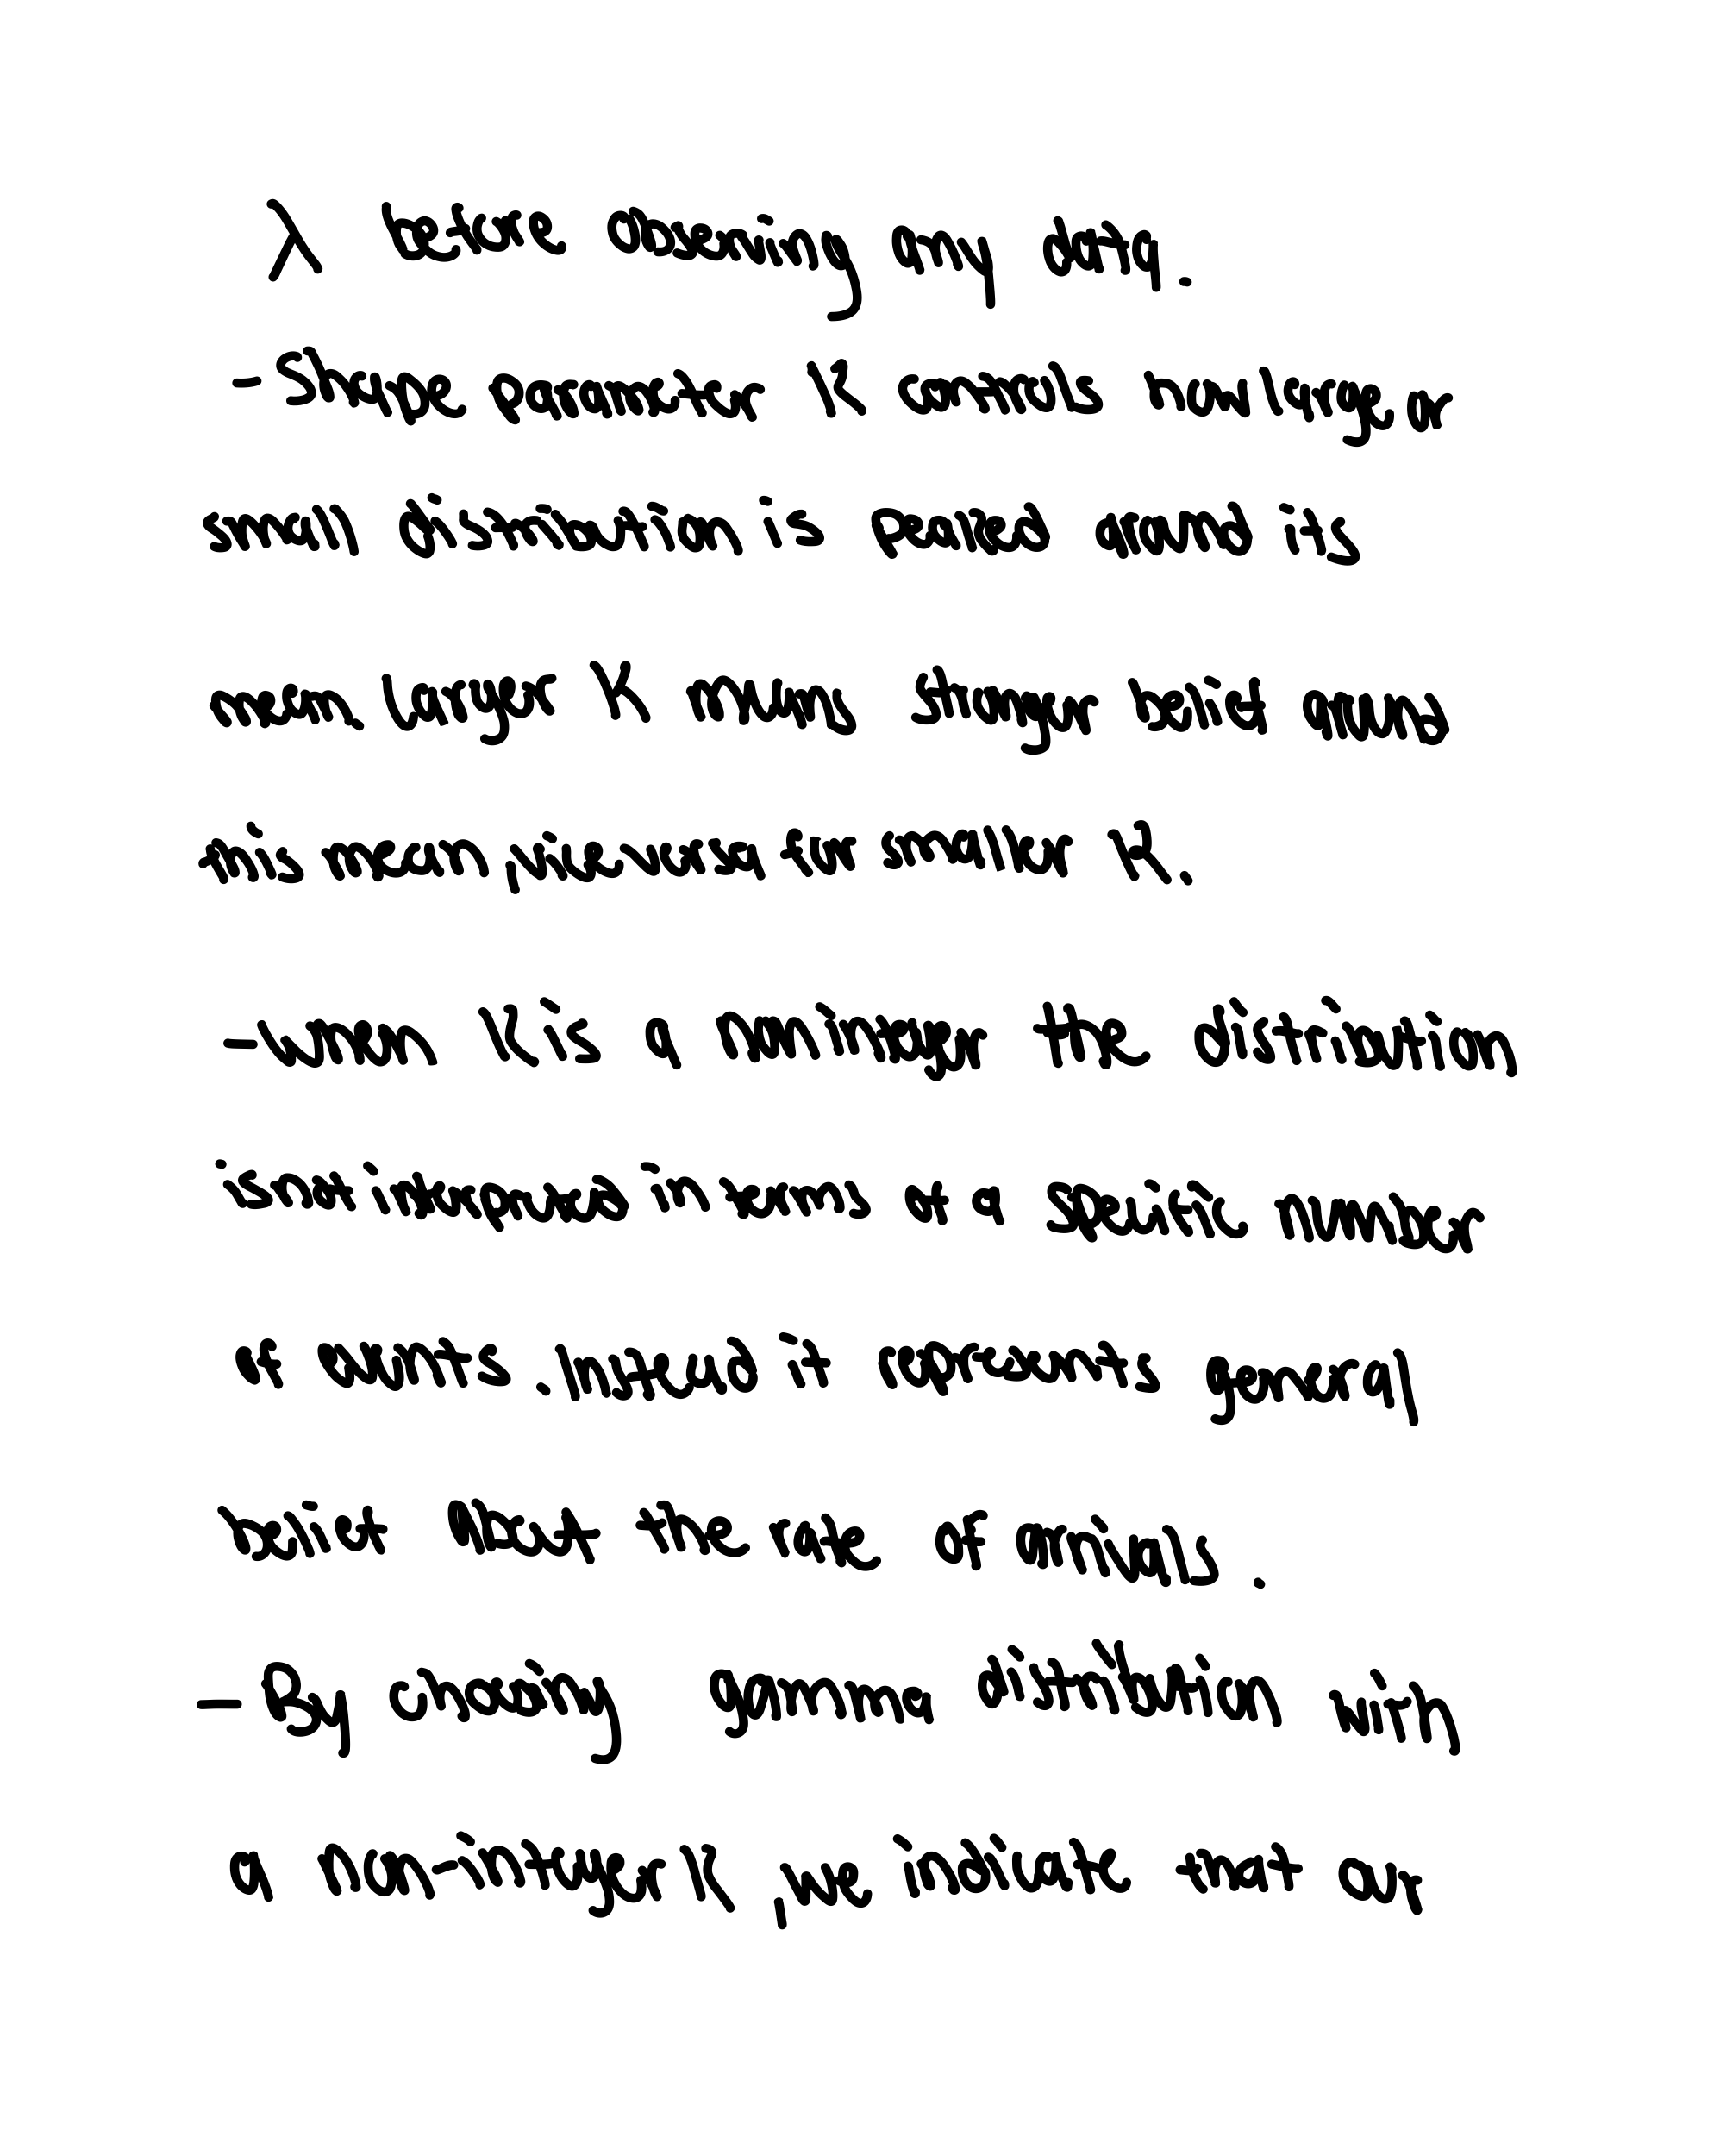 λ before observing any data.
- Shape parameter k controls how large or
small distribution is spread around its
mean larger k means stronger belief around
this mean, piece wise for smaller k.
- when k is a non-integer the distribution
is not interpreted in terms of a specific number
of events. Instead it represents general
belief about the rate of arrivals.
- By choosing gamma distribution with
a non-integer k, we indicate that our